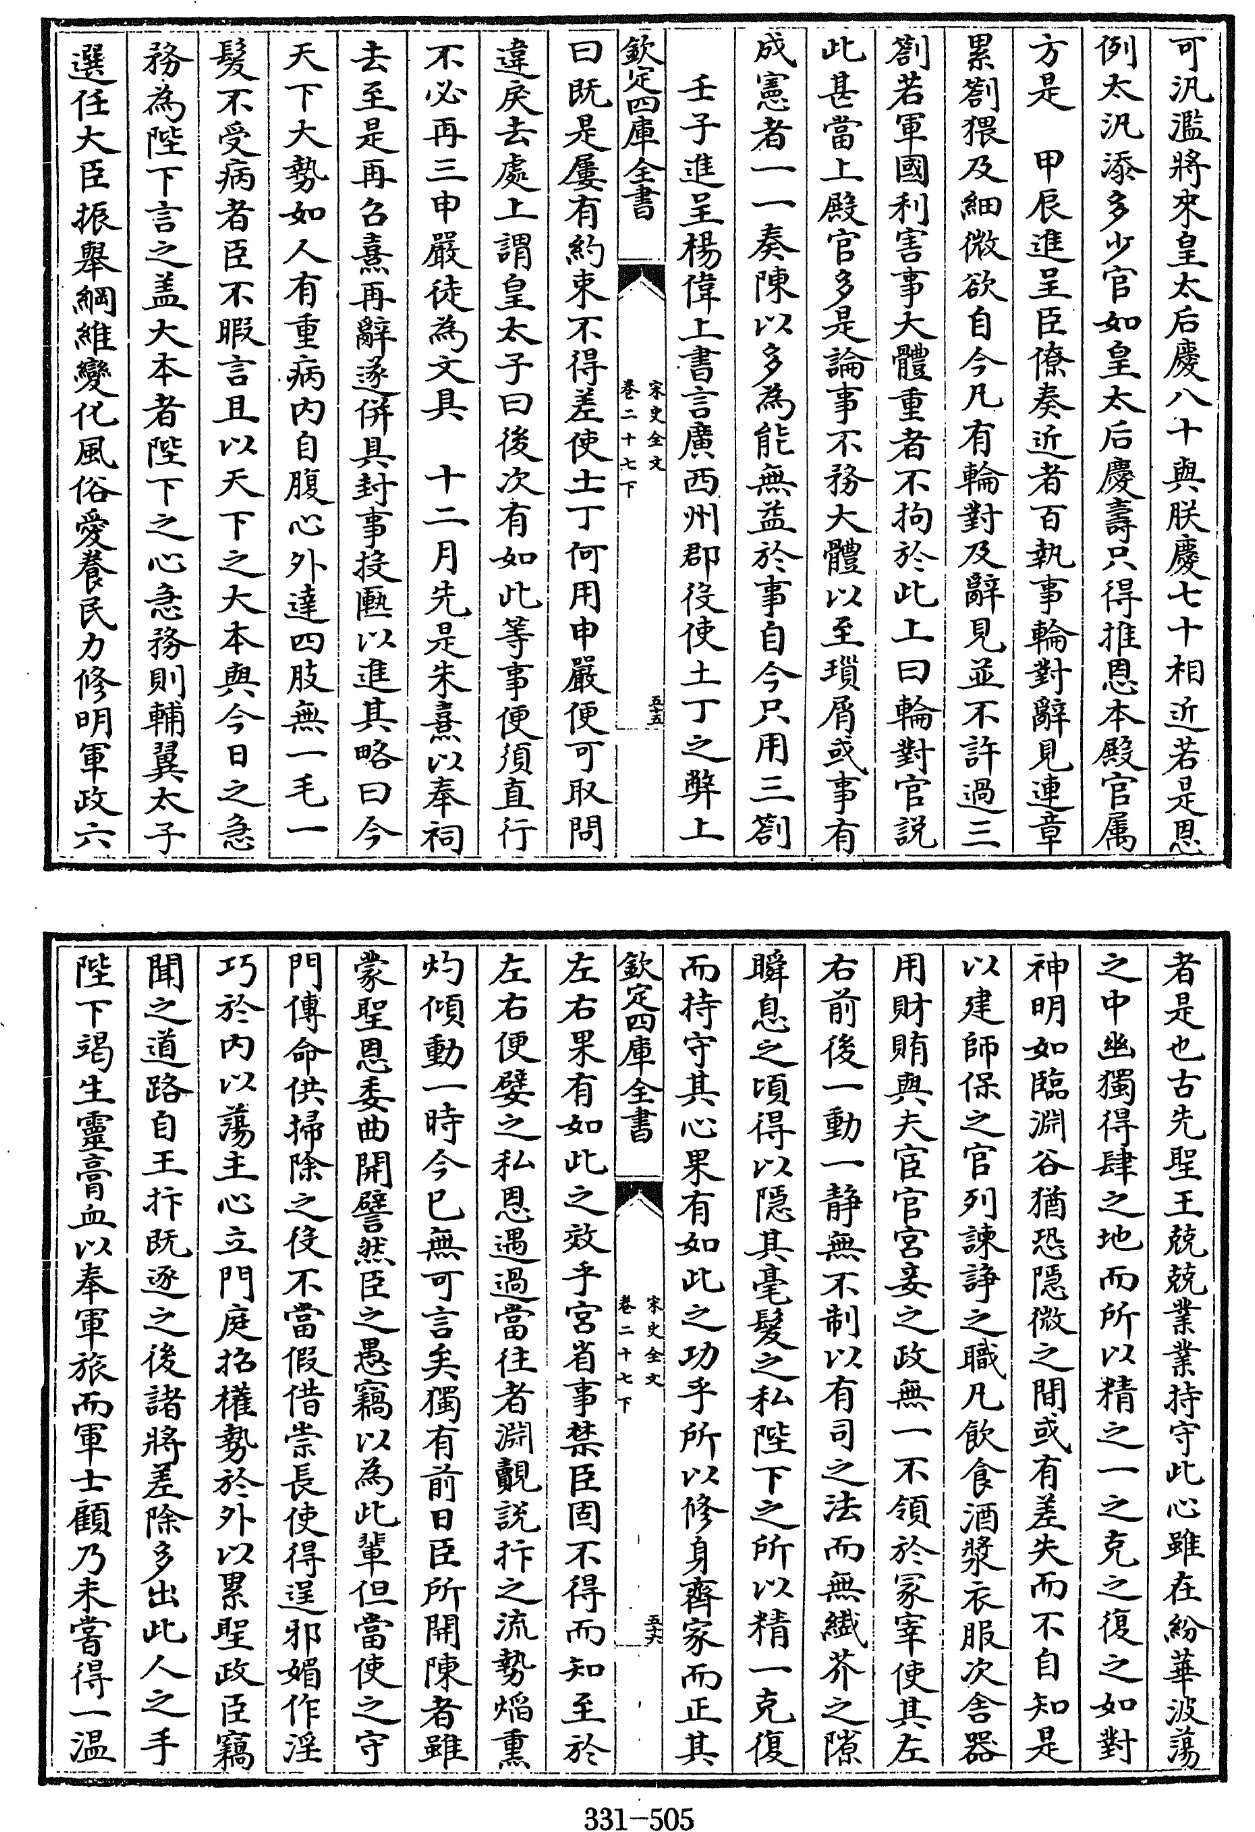 可汎濫將來皇太后慶八十與朕慶七十相近若是恩
例太汎添多少官如皇太后慶壽只得推恩本殿官屬
方是　甲辰進呈臣僚奏近者百執事輪對辭見連章
累劄猥及細微欲自今凡有輪對及辭見並不許過三
劄若軍國利害事大體重者不拘於此上曰輪對官説
此甚當上殿官多是論事不務大體以至瑣屑或事有
成憲者一一奏陳以多為能無益於事自今只用三劄
壬子進呈楊偉上書言廣西州郡役使土丁之弊上
欽定四庫全書
宋史全文
卷二十七下
五十五
曰既是屢有約束不得差使土丁何用申嚴便可取問
違戾去處上謂皇太子曰後次有如此等事便須直行
不必再三申嚴徒為文具　十二月先是朱熹以奉祠
去至是再召熹再辭遂併具封事投匭以進其略曰今
天下大勢如人有重病内自腹心外達四肢無一毛一
髮不受病者臣不暇言且以天下之大本與今日之急
務為陛下言之盖大本者陛下之心急務則輔翼太子
選任大臣振舉綱維變化風俗愛養民力修明軍政六
者是也古先聖王兢兢業業持守此心雖在紛華波蕩
之中幽獨得肆之地而所以精之一之克之復之如對
神明如臨淵谷猶恐隱微之間或有差失而不自知是
以建師保之官列諫諍之職凡飲食酒漿衣服次舍器
用財賄與夫宦官宮妾之政無一不領於冢宰使其左
右前後一動一靜無不制以有司之法而無纖芥之隙
瞬息之頃得以隱其毫髮之私陛下之所以精一克復
而持守其心果有如此之功乎所以修身齊家而正其
欽定四庫全書
宋史全文
卷二十七下
五十六
左右果有如此之效乎宮省事禁臣固不得而知至於
左右便嬖之私恩遇過當往者淵覿説抃之流勢焰熏
灼傾動一時今已無可言矣獨有前日臣所開陳者雖
蒙聖恩委曲開譬然臣之愚竊以為此輩但當使之守
門傳命供掃除之役不當假借崇長使得逞邪媚作淫
巧於内以蕩主心立門庭招權勢於外以累聖政臣竊
聞之道路自王抃既逐之後諸將差除多出此人之手
陛下竭生靈膏血以奉軍旅而軍士顧乃未嘗得一温
331-505